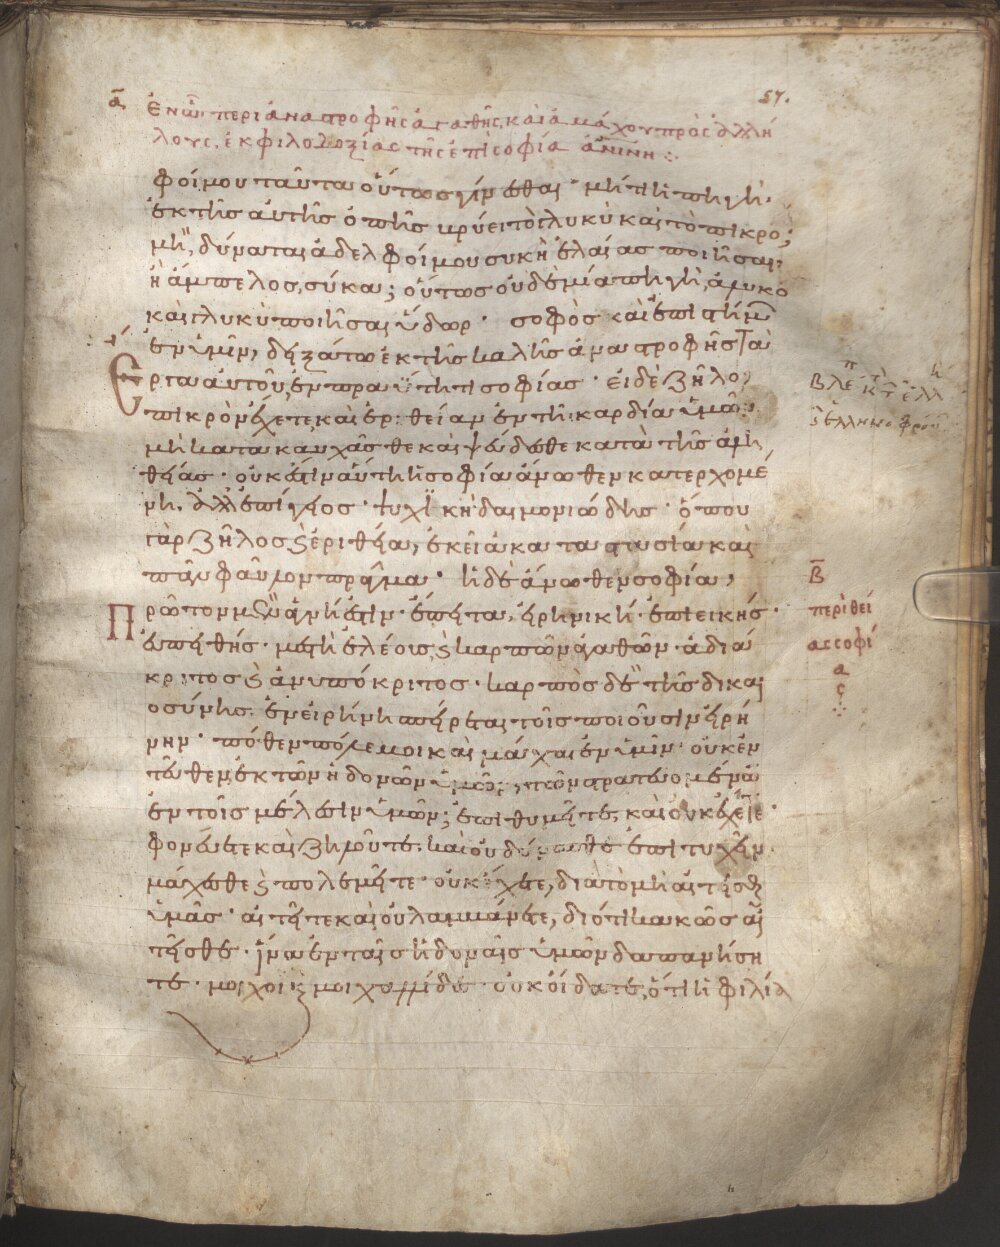 57.
ᾱ ἐν ᾧ περὶ ἀναστροφῆς ἀγαθῆς, καὶ ἀμάχου πρὸς ἀλλή
λους, ἐκ φιλοδοξίας τῆς ἐπὶ σοφία
φοί μου ταῦτα οὕτως γίνεσθαι · μήτι ἡ πηγὴ
ἐκ τῆς αὐτῆς ὀπῆς βρύει τὸ γλυκὺ καὶ τὸ πικρό;
μὴ, δύναται ἀδελφοί μου συκῆ ἐλαίας ποιῆσαι,
ἢ ἄμπελος, σύκα; οὕτως οὐδὲ μία πηγὴ, ἁλυκὸ
καὶ γλυκὺ ποιῆσαι ὕδωρ · σοφὸς καὶ ἐπιστήμ
ἐν ὑμῖν, δειξάτω ἐκ τῆς καλῆς ἀναστροφῆς τὰ
Ἔργα αὐτοῦ, ἐν πραΰτητι σοφίας · εἰ δὲ ζῆλο
πικρὸν ἔχετε, καὶ ἐρ θείαν ἐν τῇ καρδία ὑμῶν
μὴ κατακαυχᾶσθε καὶ ψεύδεσθε κατὰ τῆς ἀλη
θείας · οὐκ ἔστιν αὕτη ἡ σοφία ἄνωθεν κατερχομέ
νη, ἀλλ ἐπίγειος · ψυχϊκὴ δαιμονιώδης · ὅπου
γὰρ ζῆλος ϗ ἐριθεία, ἐκεῖ ἀκαταστασία καὶ
πᾶν φαῦλον πρᾶγμα · ἡ δὲ ἄνωθεν σοφία,
Πρῶτον μὲν ἁγνή ἐστιν · ἔπειτα, εἰρηνική · ἐπιεικής ·
εὐπειθής · μεστὴ ἐλέους, ϗ καρπῶν ἀγαθῶν · ἀδιά
κριτος ϗ ἀνυπόκριτος · καρπὸς δὲ τῆς δικαι
οσύνης, ἐν εἰρήνη σπείρεται τοῖς ποιοῦσιν εἰρή
νην · πόθεν πόλεμοι καὶ μάχαι ἐν ὑμῖν · οὐκ ἐν
τεῦθεν, ἐκ τῶν ἡδονῶν ὑμῶν, τῶν στρατευομένων
ἐν τοῖς μέλεσιν ὑμῶν; ἐπιθυμεῖτε, καὶ οὐκ ἔχετε ·
φονεύετε καὶ ζηλοῦτε, καὶ οὐ δύνασθε ἐπιτυχεῖν ·
μάχεσθε ϗ πολεμεῖτε · οὐκ ἔχετε, διὰ τὸ μὴ αἰτεῖσθ
ὑμᾶς · αἰτεῖτε καὶ οὐ λαμβάνετε, διότι κακῶς αἰ
τεῖσθε · ἵνα ἐν ταῖς ἡδοναῖς ὑμῶν δαπανήση
τε · μοιχοὶ ϗ μοιχαλίδε · οὐκ οἴδατε, ὅτι ἡ φιλία
β̄
περὶ θεί
ας σοφί
α
ς